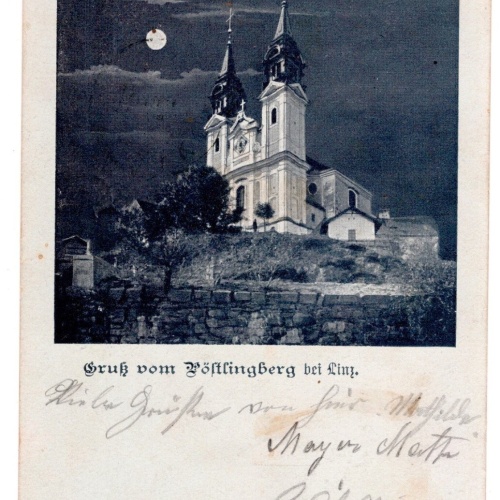 Gruß vom Pöstlingberg bei Linz.
Viele Grüße von hier Mathilde
Mayer